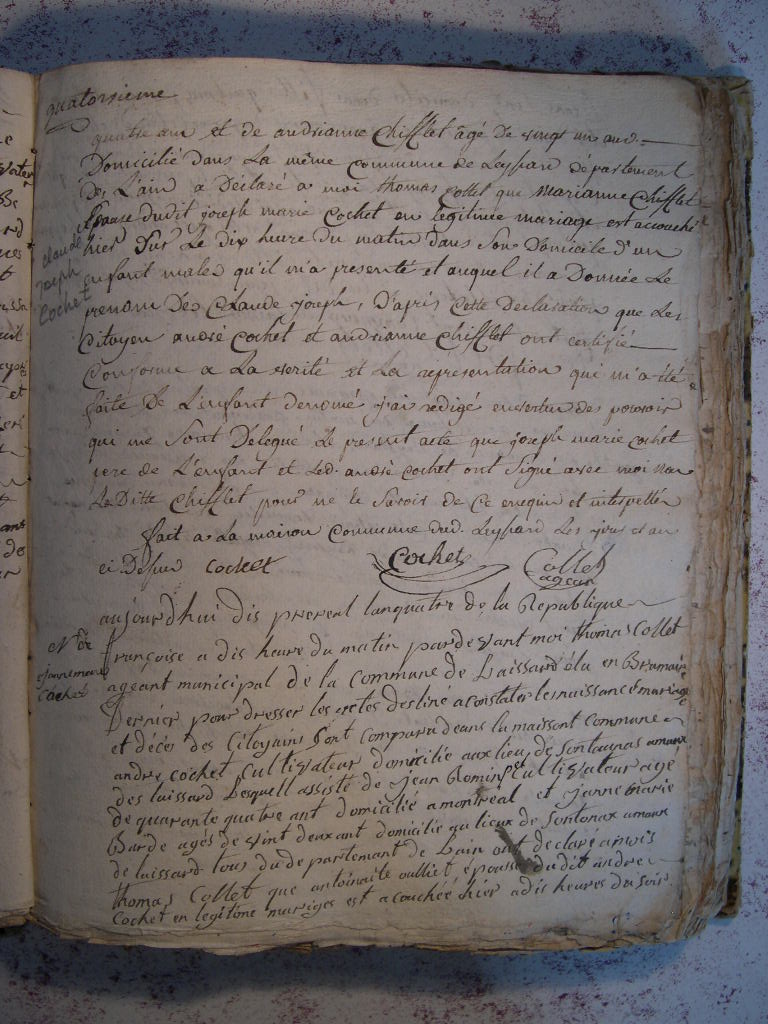 quatorsieme
quatre ans et de andrianne Chifflet âgé de vingt un ans
Domicilié dans La même commune de Leyssard département
De L'ain a Déclaré a moi thomas Collet que marianne Chifflet
Epouse dudit joseph marie Cochet en légitime mariage est accouché
hier Sur Le dix heure Du matin dans Son Domicile d'un
Enfant male qu'il m'a presenté et auquel il a Donnée Le
prenom De Claude joseph, D'apris Cette Declaration que Les
Citoyen andré Cochet et andrianne Chifflet ont certifié
Conforme a La verité et La representation qui m'a été
faite De L'enfant denomé j'ai redigé envertu des pouvoir
qui me Sont Delegué Le present acte que joseph marie cochet
pere de L'enfant et Led. andré Cochet ont Signé avec moi non
La Ditte Chifflet pour ne le Savoir de Ce enquis et interpellée
fait a La maison Commune dud. Leyssard Les jour et an
ci Desur Cochet Cochet Collet
agean
Claude
joseph
Cochet
aujourd'hui dis prereal lanquatre de la Republique
françoise a dis heure du matin pardevant moi Thomas Collet
ageant municipal de la Commune de Laissard élu en Brumaire
Dernier pour dresser les actes destiné a constater les naissance mariage
et décès des Citoyains Sont Comparu deans la maissont Commune
andre Cochet Cultivateur domicilié aux lieu de Sontonas
des laissard Lesquell assisté de jean Cultivateur agé
de quarante quatre ant domicilié a montréal et janne marie
Barde agés de vint deux ant domicilié au lieux de Sontonax
de laissard tous du departemant de Lain ont declaré a mois
thomas Collet que antoinaite oulliet épouse du dit andre
Cochet en legitime mariges est acouchée hier a dis heures du Soir
janne marie
Cochet